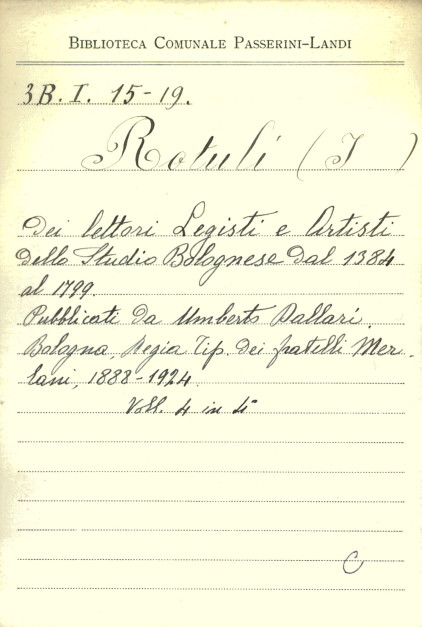 BIBLIOTECA COMUNALE PASSERINI-LANDI
3B. I. 15-19.
Rotuli (I)
dei lettori Legisti e Artisti
dello Studio Bolognese dal 1384
al 1799.
Pubblicati da Umberto Dallari.
Bologna, Regia Tip. dei fratelli Mer-
lani, 1888-1924.
Voll. 4 in 4°
C